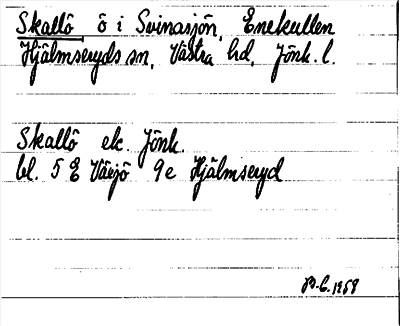 Skallö ö i Svinasjön, Enekullen
Hjälmseryds sn, Västra hd, Jönk. l.
Skallö ek. Jönk.
bl. 5 E Växjö 9e Hjälmseryd
B.C. 1959